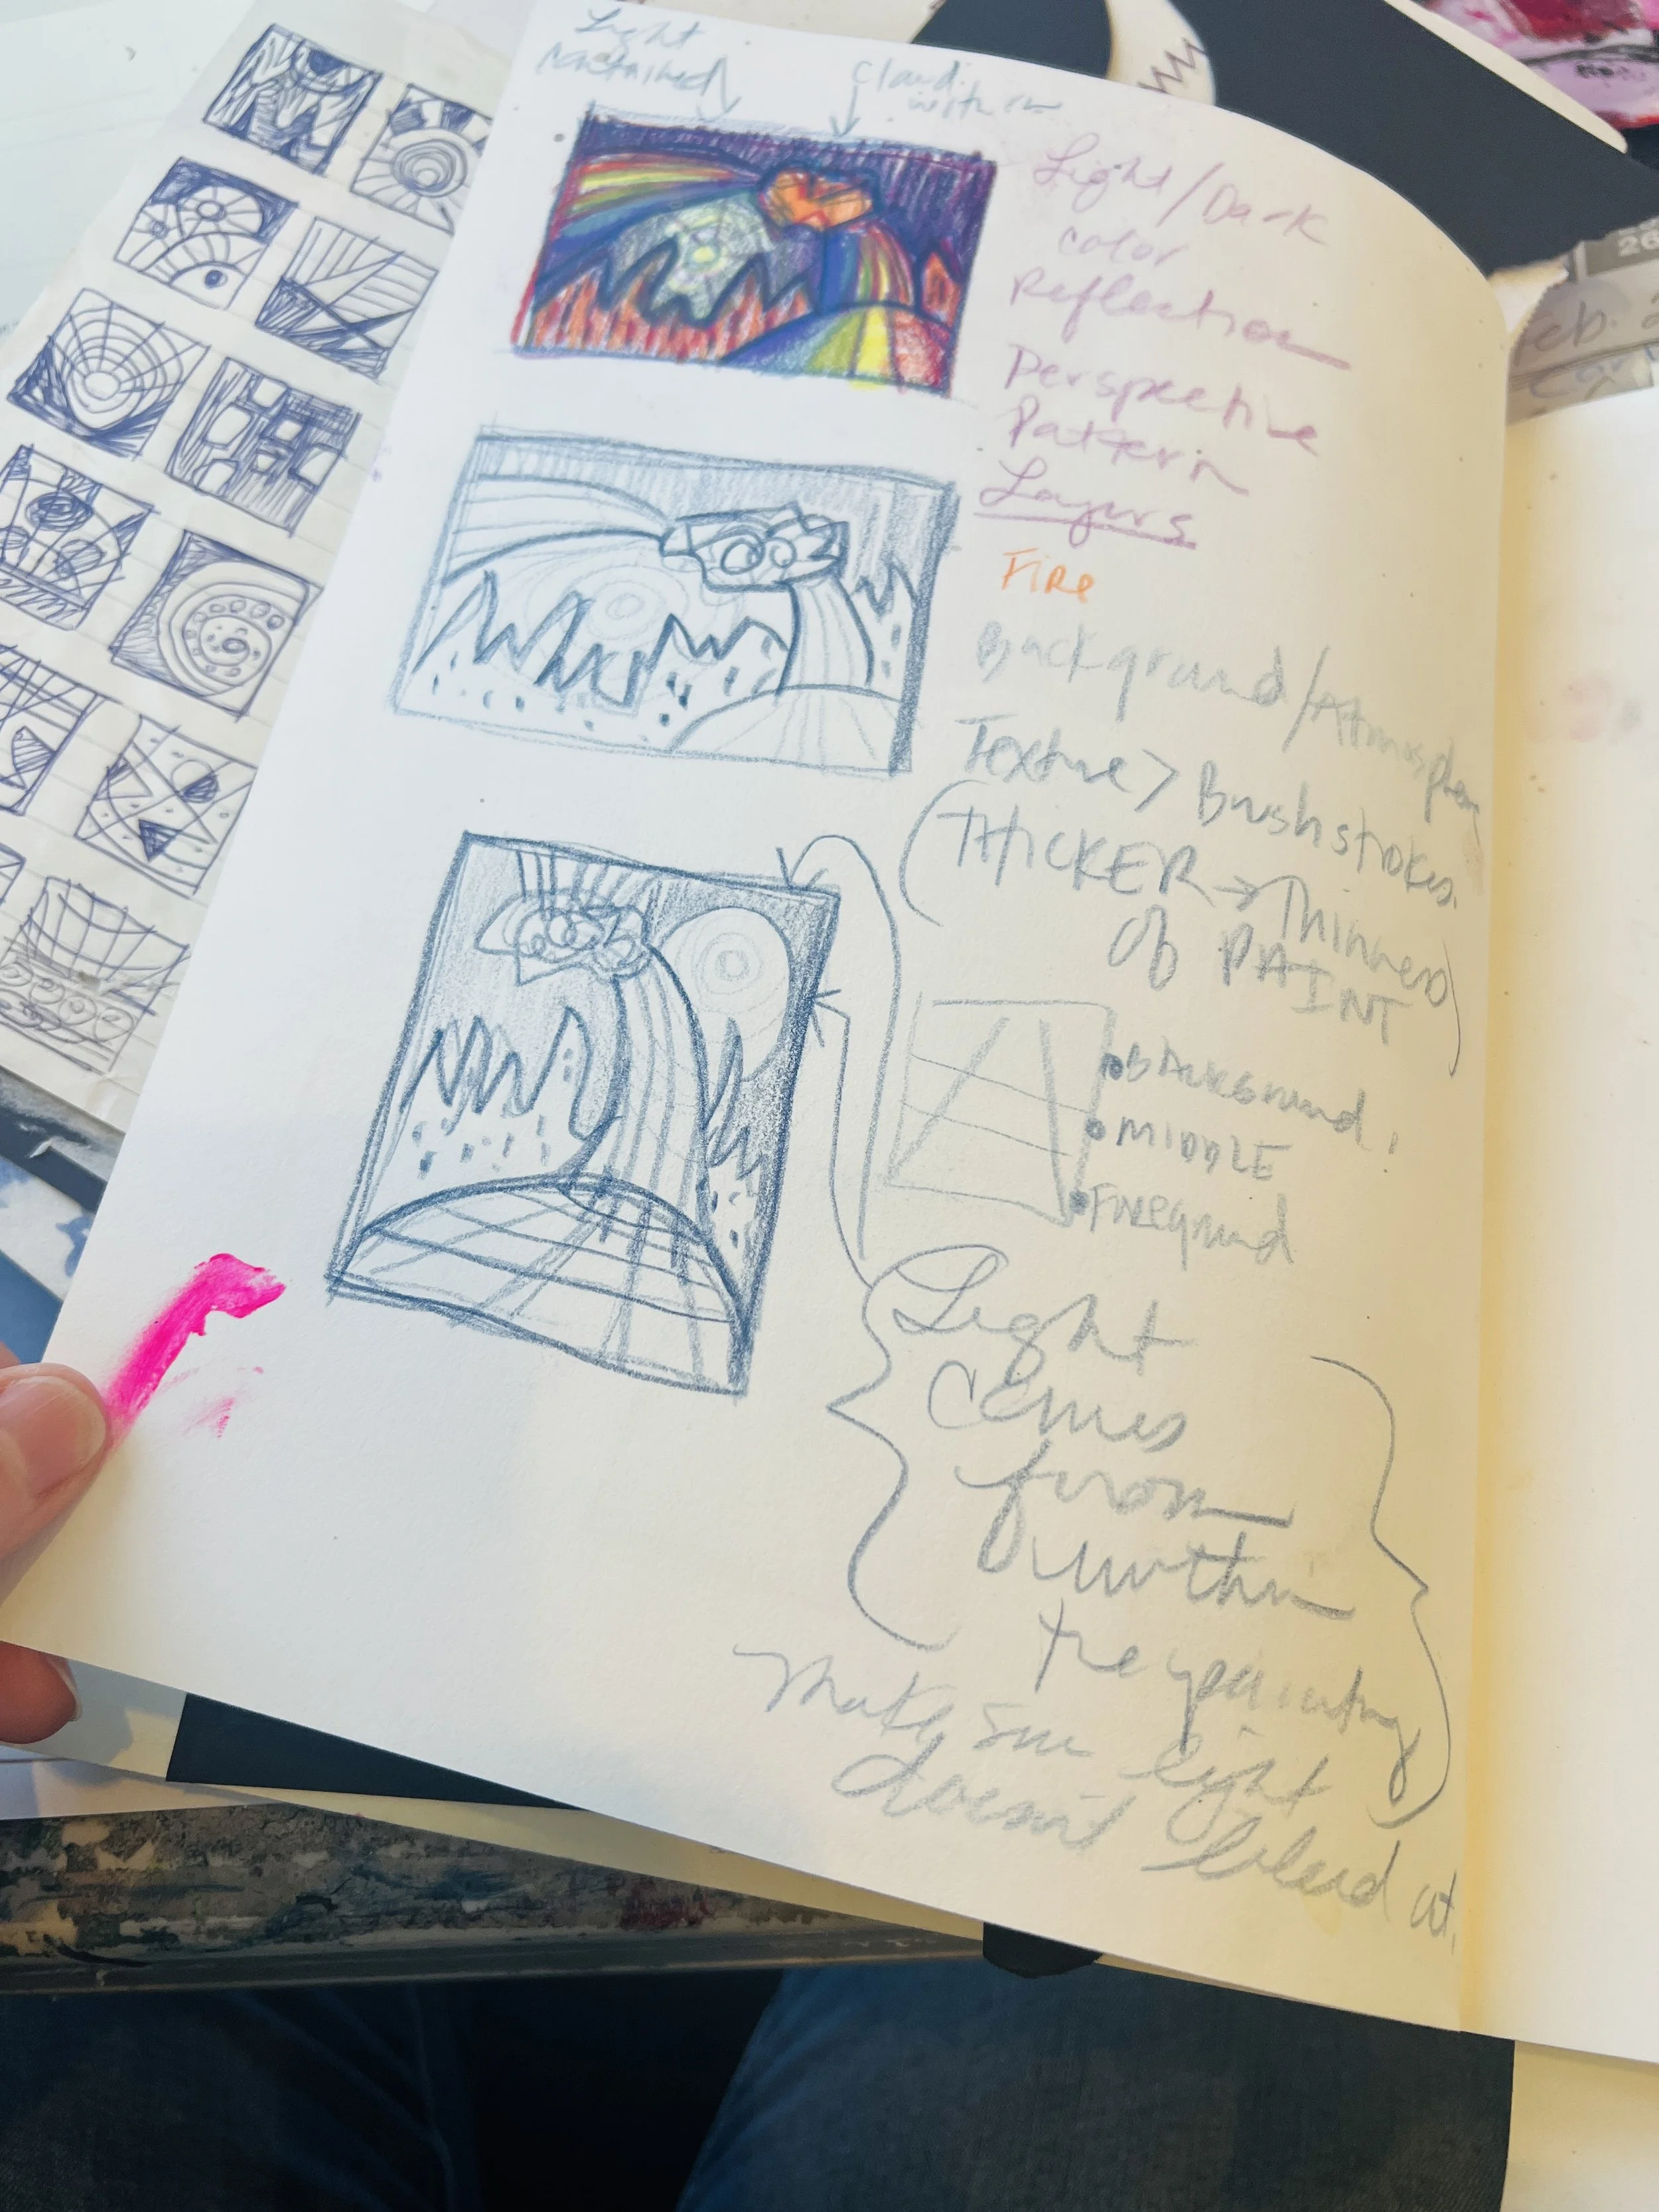 Light
contained
cloud
within
Light/Dark
color
Reflection
Perspective
Pattern
Layers
FIRe
Background/Atmosphere
Texture > Brushstrokes
(THICKER → Thinned)
of PAINT
• BACKGROUND
• MIDDLE
• Foreground
Light
comes
from
within
the painting
Make sure light
doesn't bleed out.
26
Feb. 2